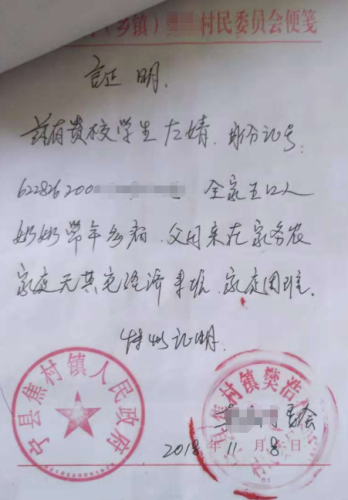 （乡镇）村民委员会便笺
证明
兹有贵校学生左婧，身份证号：
622826200 全家五口人
奶奶常年多病，父母亲在家务农
家庭无其它经济来源，家庭困难。
特此证明。
宁县焦村镇人民政府
村镇樊浩
委会
2018年11月8日